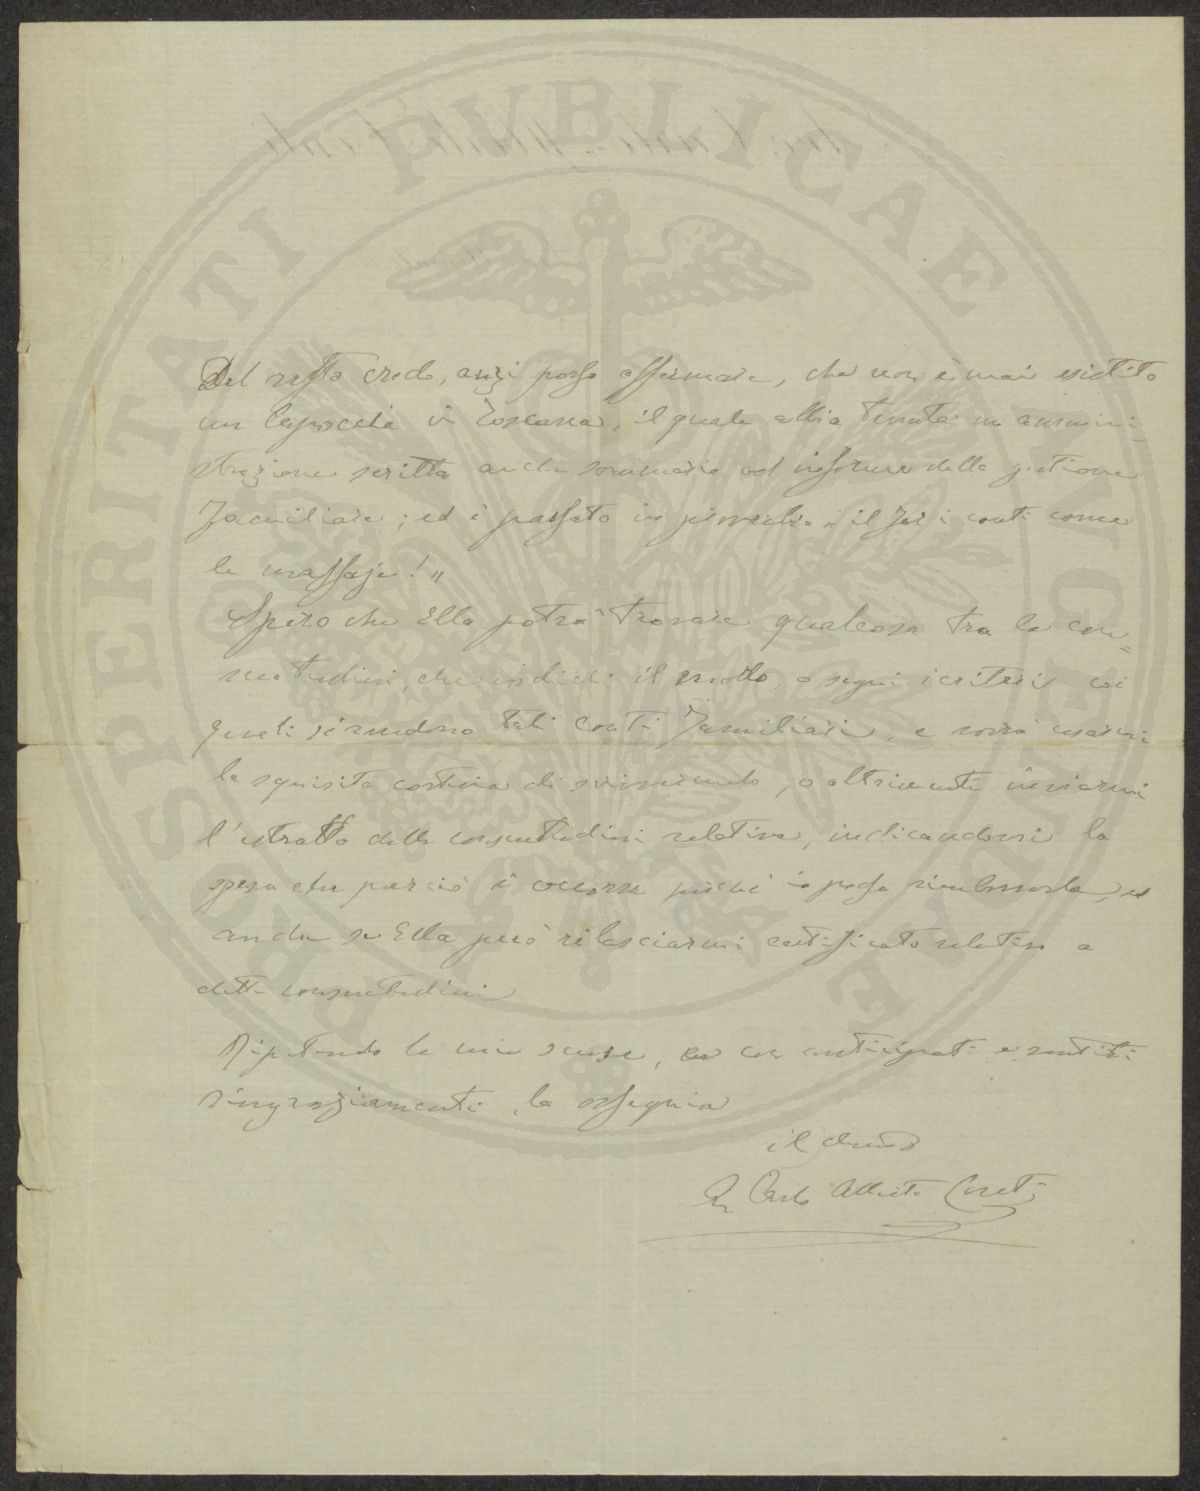 PROSPERITATI PVBLICAE AVGENDAE
Del resto credo, anzi posso affermare, che non è mai esistito
un Capoccia in Toscana, il quale abbia tenuta un ammini-
strazione scritta anche sommaria ed informe della gestione
familiare; ed è passato in proverbio „ il far i conti come
le massaje! „
Spero che Ella potrà trovare qualcosa tra le con=
suetudini, che indichi il modo, o segni i criteri coi
quali si rendono tali conti familiari, e vorrà usarmi
la squisita cortesia di , o altrimenti inviarmi
l'estratto delle consuetudini relative, indicandomi la
spesa che perciò è occorsa perché io possa rimborsarla, ed
anche se Ella può rilasciarmi certificato relativo a
dette consuetudini
Ripetendo le mie scuse, e con anticipati e sentiti
ringraziamenti, la ossequia
il
Carlo Alberto